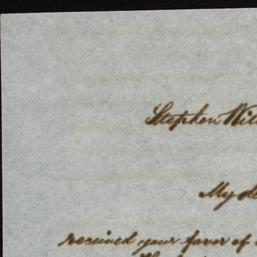 Stephen Wil
My de
received your favor of